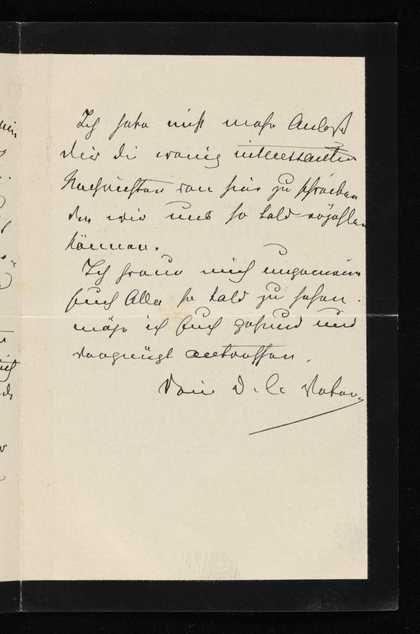 Ich habe nicht mehr Anlaß
Dir die wenig interessanten
Nachrichten von hier zu schreiben
wir uns so bald erzählen
können.
Ich freue mich ungemein
Euch Alle so bald zu sehen.
möge ich Euch gesund und
vergnügt antreffen.
Dein D. l. Vater